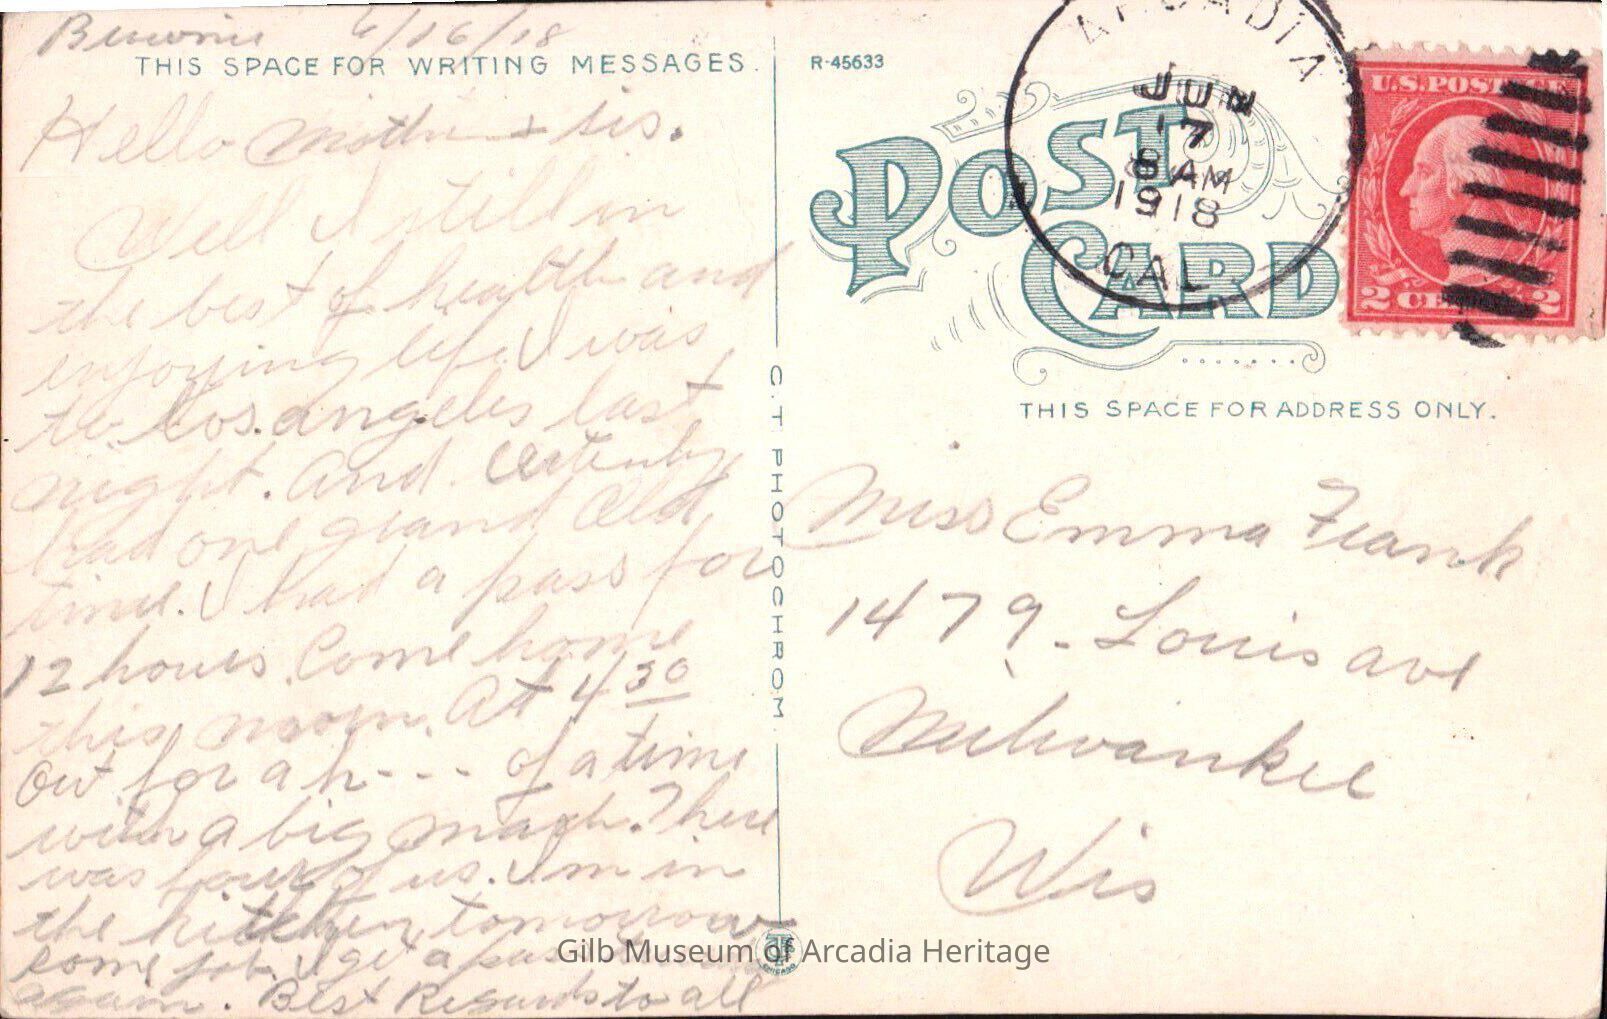 6/16/18
THIS SPACE FOR WRITING MESSAGES.
Hello Mother + sis.
Well I still in
the best of health and
enjoying life. I was
to Los. Angeles last
night. And. Certenly
had one grand old
time. I had a pass for
12 hours. Come home
this morn. At 4 30
Out for a h--- of a time
with a big mach. There
was four of us. I'm in
the kitchen tomorrow
some job. I get a pass
again. Best Regards to all
C. T. PHOTOCHROM.
R-45633
POST CARD
ARCADIA
JUN
17
8 AM
1918
CAL
U.S. POSTAGE
2 CENTS 2
THIS SPACE FOR ADDRESS ONLY.
Miss Emma Frank
1479 - Louis ave
Milwaukee
Wis
Gilb Museum of Arcadia Heritage